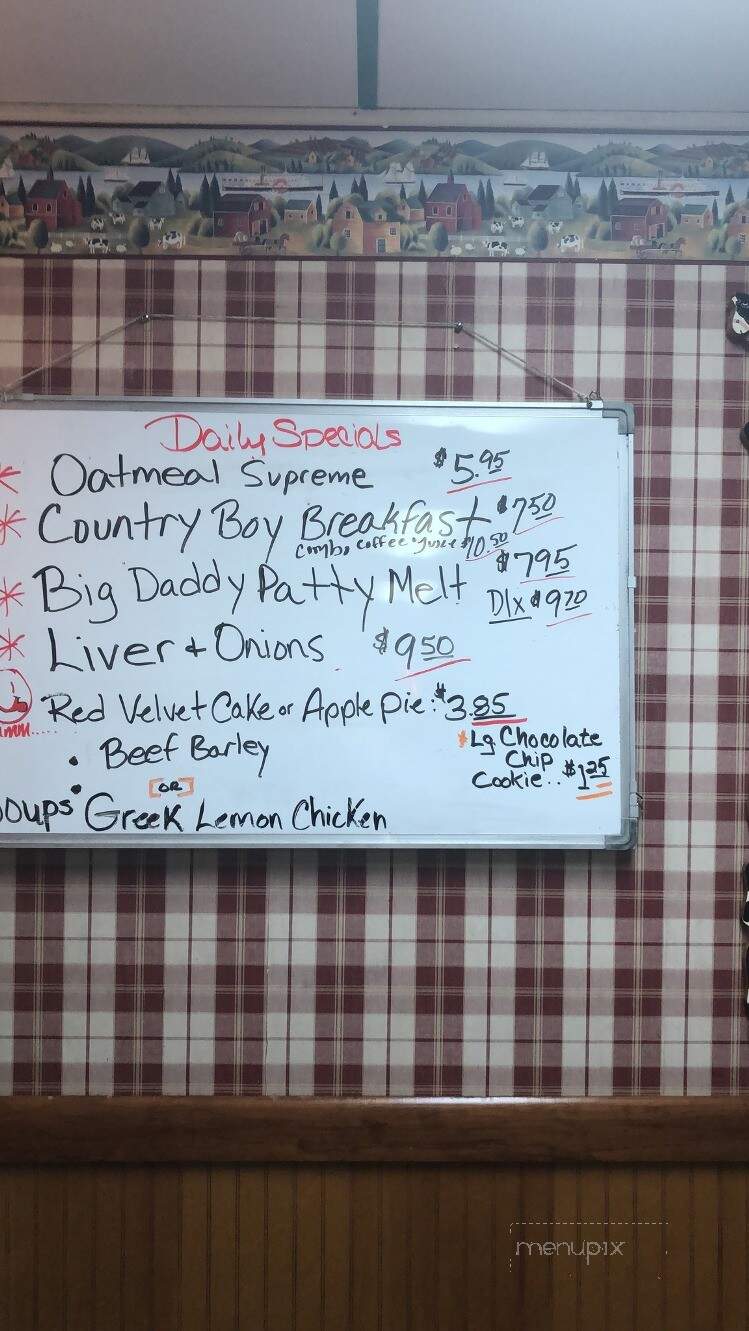 Daily Specials
* Oatmeal Supreme $5.95
* Country Boy Breakfast $7.50
Combo Coffee + Juice $10.50
* Big Daddy Patty Melt $7.95
Dlx $9.70
* Liver + Onions $9.50
Red Velvet Cake or Apple Pie: $3.85
• Beef Barley
[OR]
• Greek Lemon Chicken
*Lg Chocolate
Chip
Cookie.. $1.25
menupix